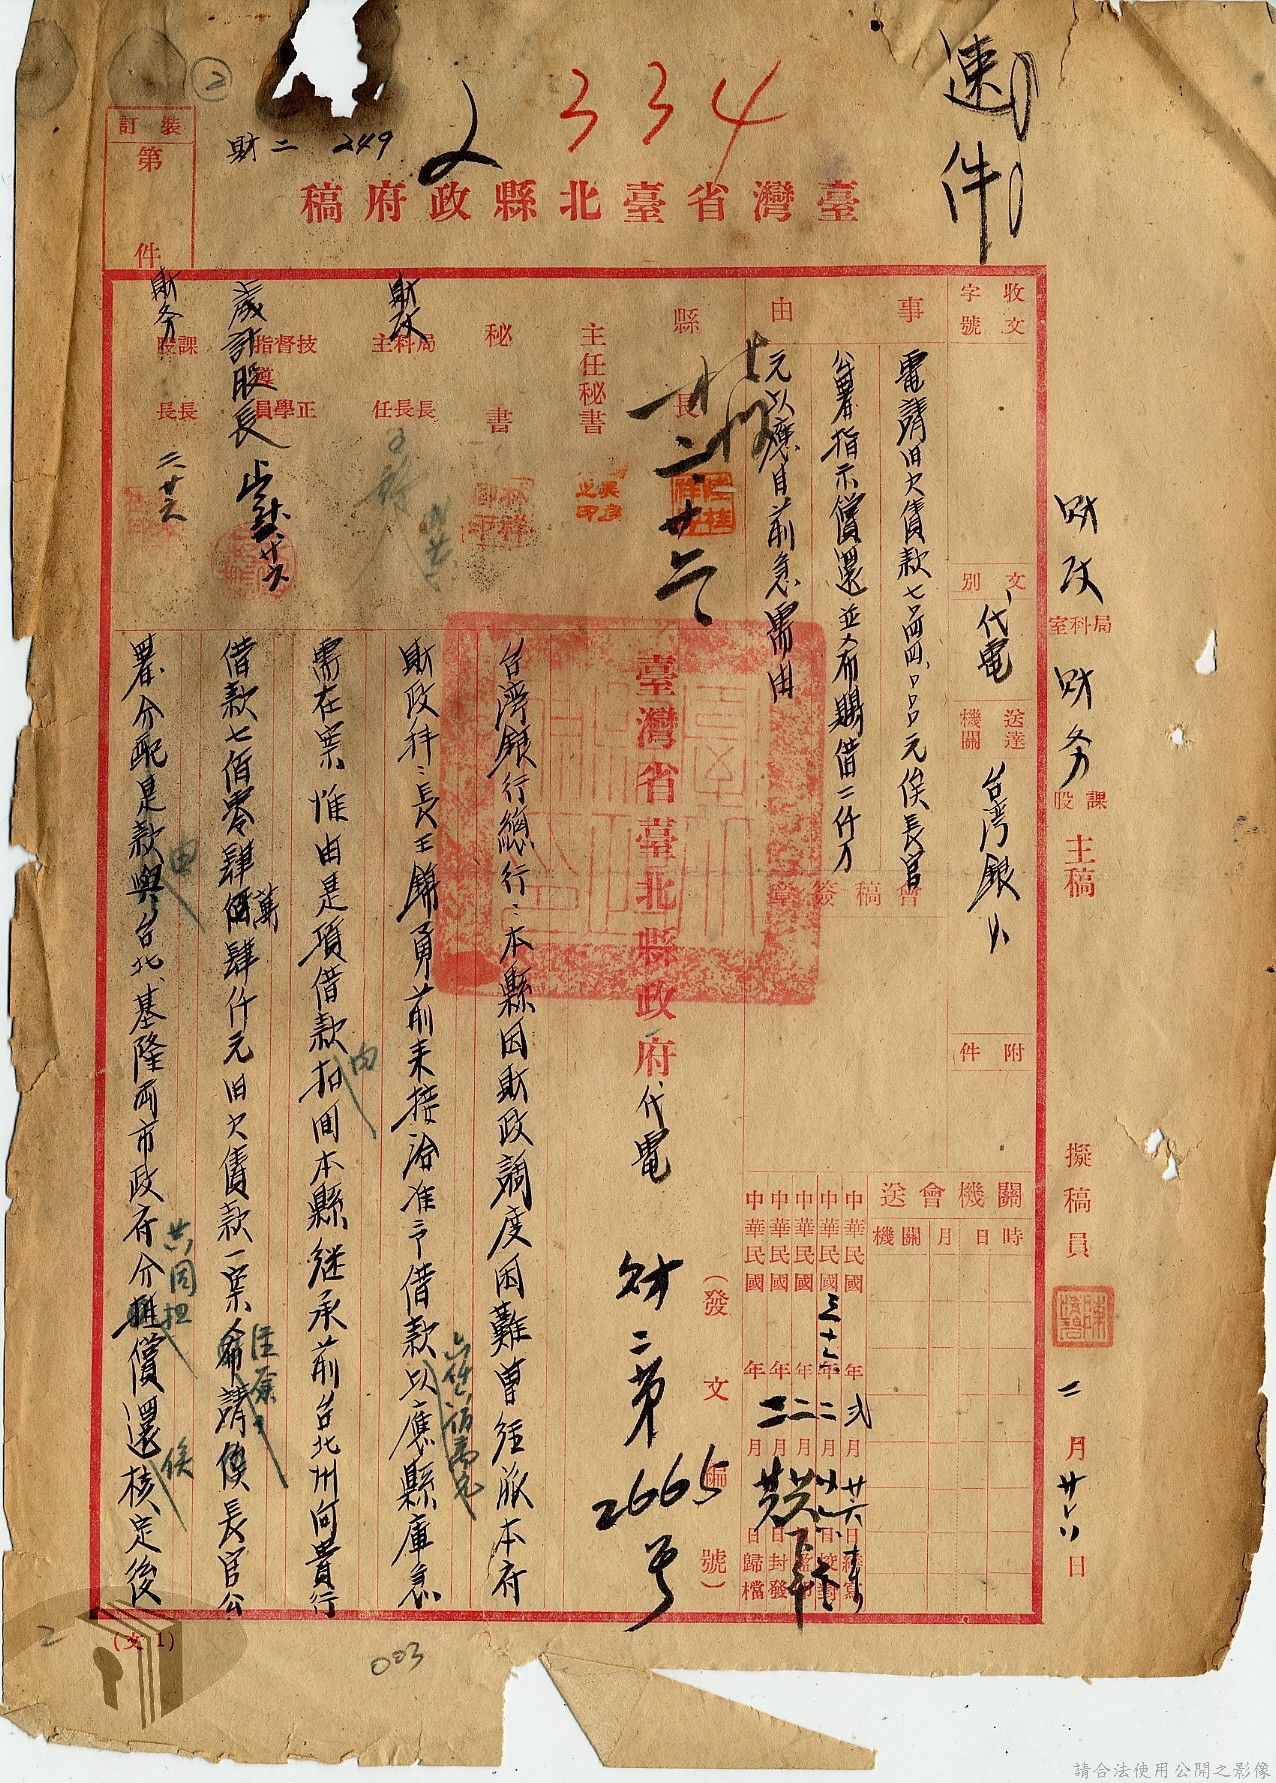 速件
334
2
②
財二 249
裝訂
第 件
臺灣省臺北縣政府稿
收文
字號
文別
代電
送達機關
台灣銀行
附件
事由
電請旧欠債款七、〇四四、〇〇〇元俟長官
公署指示償還並希賜借二仟万
元以應目前急需由
會稿簽章
機關會送
機關 月 日 時
中華民國三十六年弍月廿六日
中華民國 年二月 日校對
中華民國 年二月 日
中華民國 年二月 日封發
中華民國 年 月 日歸檔
財政局科室
財务課股
主稿
擬稿員
二月廿六日
縣長
二、廿六
主任秘書
秘書
財政
局長科長主任
技正督學指導員
歲計股長
財务
課長股長
二 廿六
臺灣省臺北縣政府代電
(發文編號)
財二第2665号
台灣銀行總行:本縣因財政調度困難曾經派本府
財政科科長王錦勇前来接洽准予借款以應縣庫急
六仟六佰萬元
需在案惟由是項借款扣囬本縣继承前台北州向貴行
由
借款七佰零肆萬肆仟元旧欠債款一案希請俟長官公
署分配是款與台北、基隆兩市政府分担償還核定後
由
共同担
俟
(文1)
2
003
請合法使用公開之影像